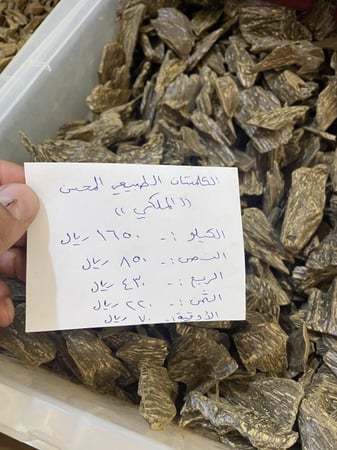 الكلمنتان الطبيعي المحسن
((الملكي))
الكيلو :- ١٦٥٠ ريال
النص :- ٨٥٠ ريال
الربع :- ٤٣٠ ريال
الثمن :- ٢٢٠ ريال
الأوقية :- ٧٠ ريال